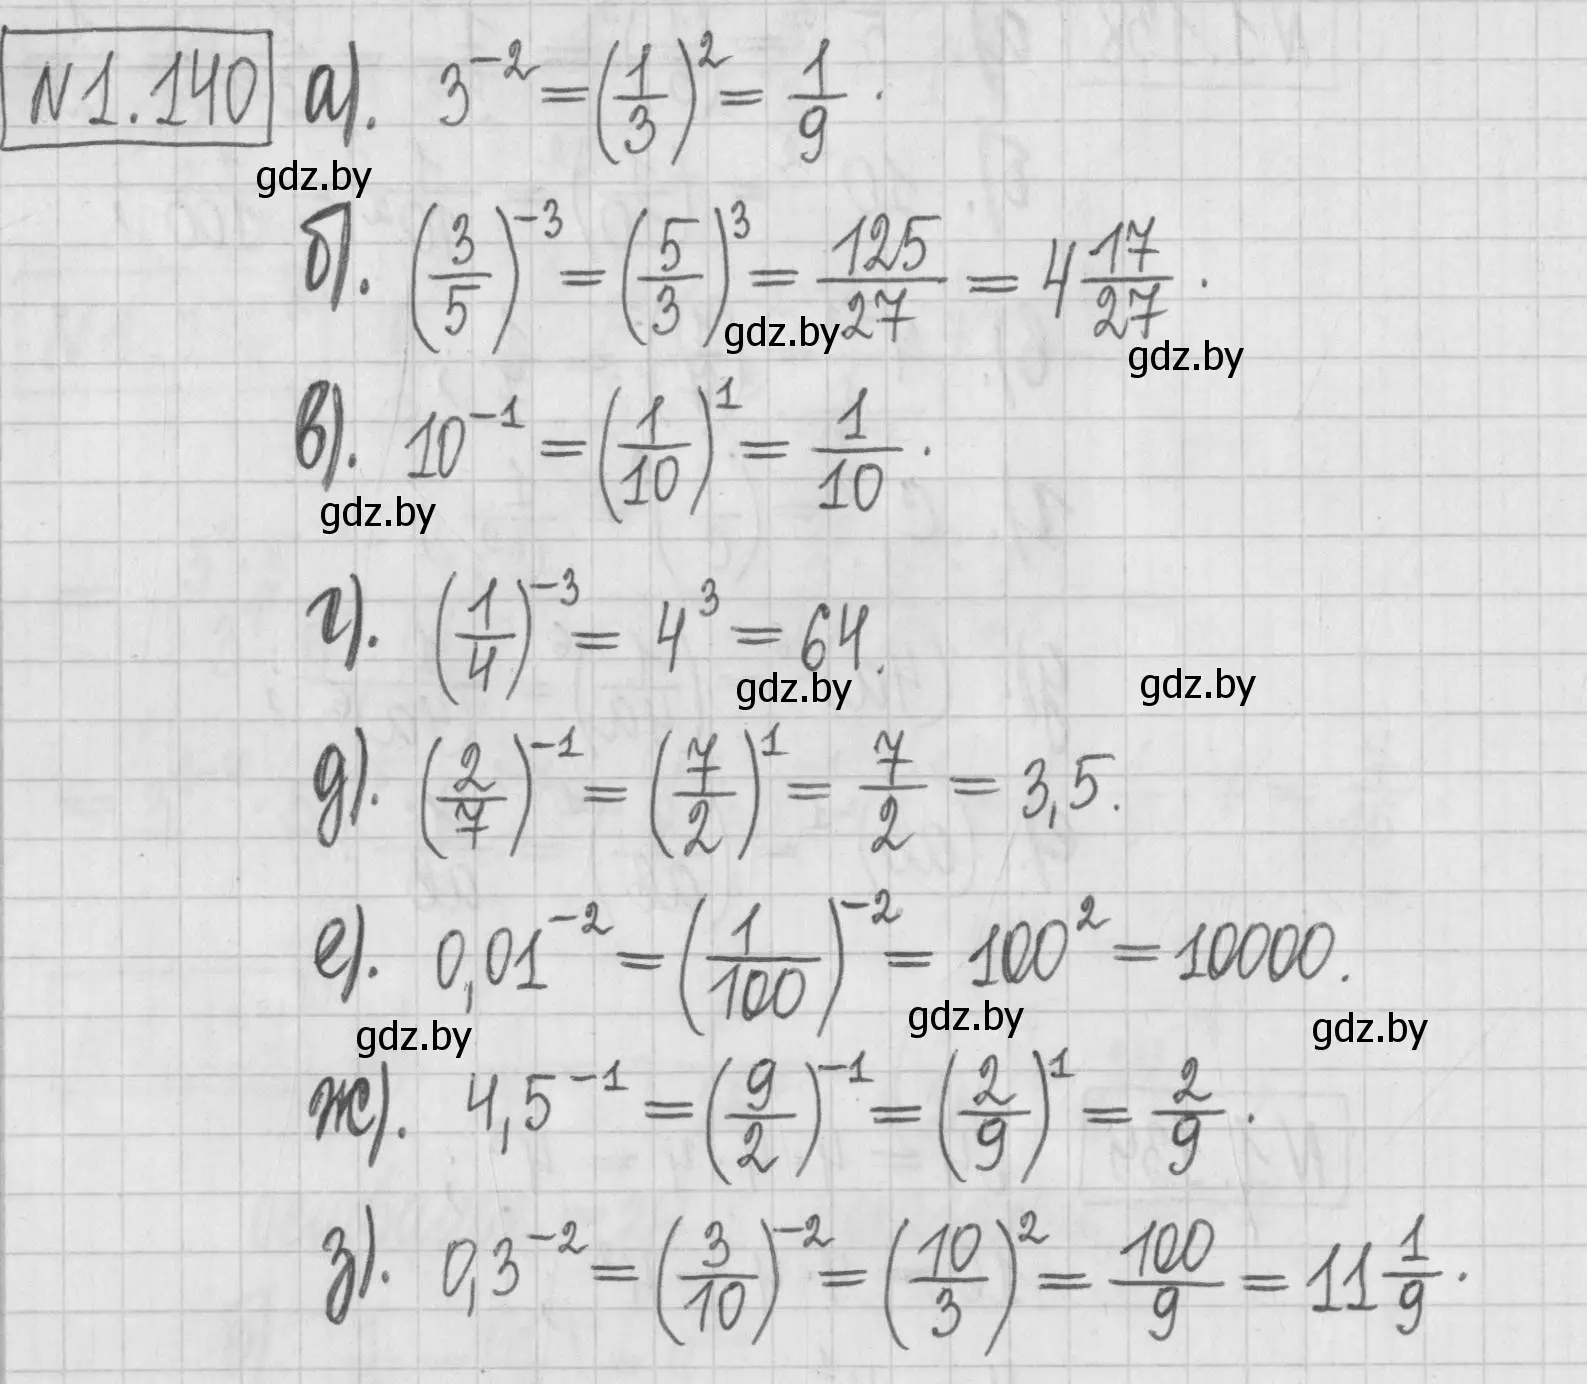 N1.140 а). 3⁻² = (1/3)² = 1/9.
gdz.by
б). (3/5)⁻³ = (5/3)³ = 125/27 = 4 17/27.
gdz.by gdz.by
в). 10⁻¹ = (1/10)¹ = 1/10.
gdz.by
г). (1/4)⁻³ = 4³ = 64.
gdz.by gdz.by
д). (2/7)⁻¹ = (7/2)¹ = 7/2 = 3,5.
е). 0,01⁻² = (1/100)⁻² = 100² = 10000.
gdz.by gdz.by gdz.by
ж). 4,5⁻¹ = (9/2)⁻¹ = (2/9)¹ = 2/9.
з). 0,3⁻² = (3/10)⁻² = (10/3)² = 100/9 = 11 1/9.